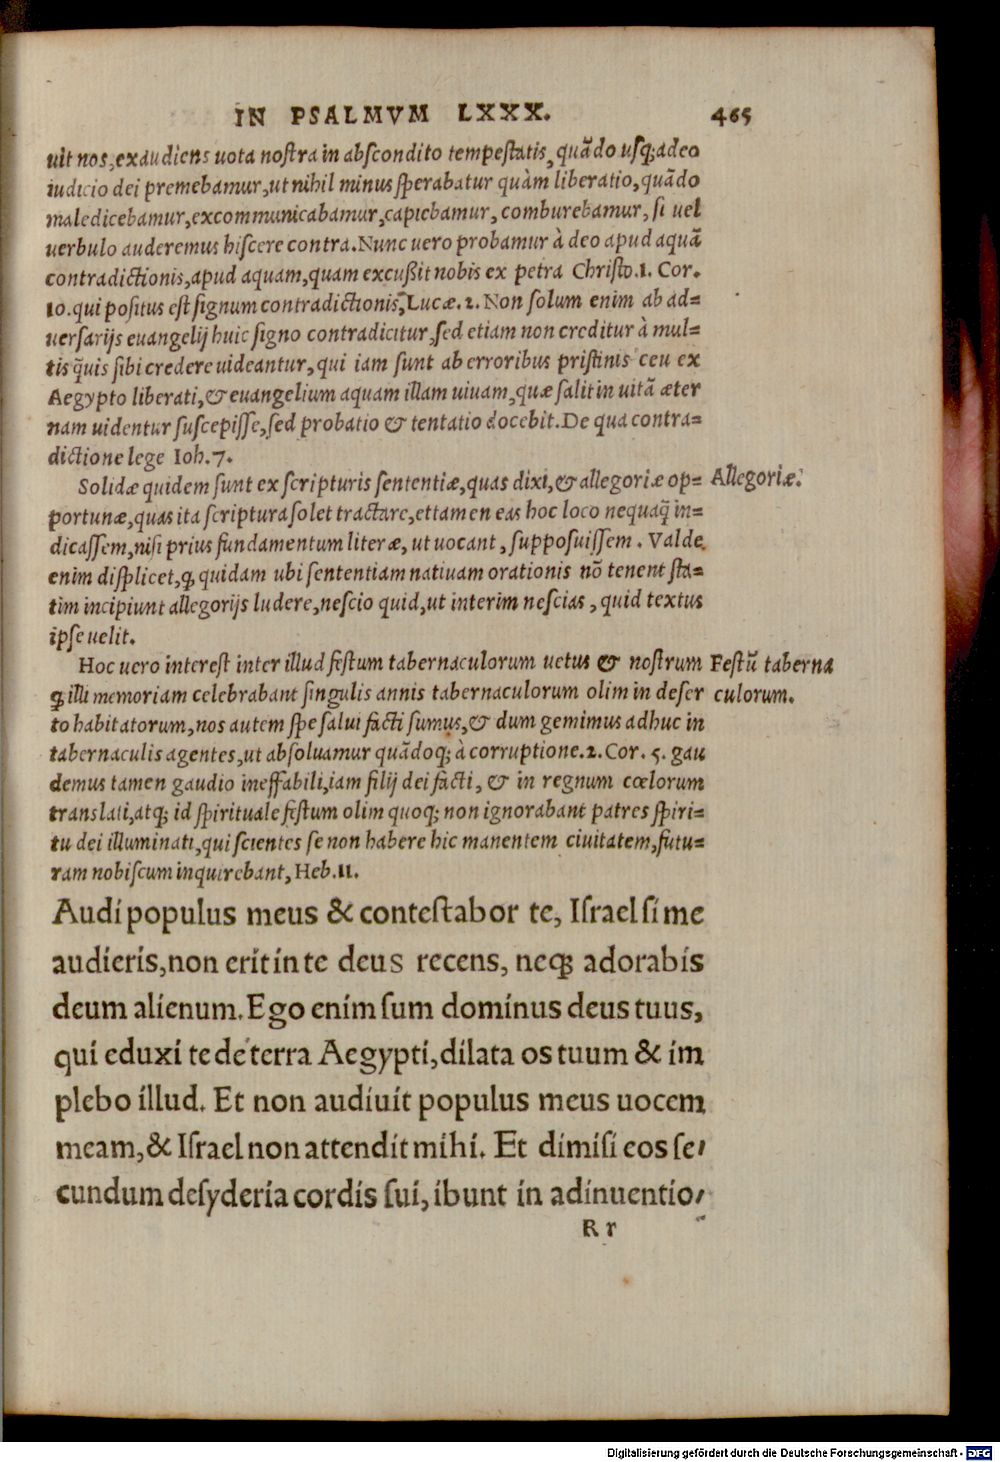 IN PSALMVM LXXX. 465
uit nos, exaudiens uota nostra in abscondito tempestatis, quãdo usq; adeo
iudicio dei premebamur, ut nihil minus sperabatur quàm liberatio, quãdo
maledicebamur, excommunicabamur, capiebamur, comburebamur, si uel
uerbulo auderemus hiscere contra. Nunc uero probamur à deo apud aquã
contradictionis, apud aquam, quam excußit nobis ex petra Christo. 1. Cor.
10. qui positus est signum contradictionis, Lucæ. 2. Non solum enim ab ad=
uersarijs euangelij huic signo contradicitur, sed etiam non creditur à mul=
tis q̃uis sibi credere uideantur, qui iam sunt ab erroribus pristinis ceu ex
Aegypto liberati, & euangelium aquam illam uiuam, quæ salit in uitã æter
nam uidentur suscepisse, sed probatio & tentatio docebit. De qua contra=
dictione lege Ioh. 7.
Solidæ quidem sunt ex scripturis sententiæ, quas dixi, & allegoriæ op= Allegoriæ.
portunæ, quas ita scriptura solet tractare, et tamen eas hoc loco nequaq̃ in=
dicassem, nisi prius fundamentum literæ, ut uocant, supposuissem. Valde
enim displicet, ꝙ quidam ubi sententiam natiuam orationis nõ tenent sta=
tim incipiunt allegorijs ludere, nescio quid, ut interim nescias, quid textus
ipse uelit.
Hoc uero interest inter illud festum tabernaculorum uetus & nostrum Festũ taberna
ꝙ illi memoriam celebrabant singulis annis tabernaculorum olim in deser culorum.
to habitatorum, nos autem spe salui facti sumus, & dum gemimus adhuc in
tabernaculis agentes, ut absoluamur quãdoq; à corruptione. 2. Cor. 5. gau
demus tamen gaudio ineffabili, iam filij dei facti, & in regnum cœlorum
translati, atq; id spirituale festum olim quoq; non ignorabant patres spiri=
tu dei illuminati, qui scientes se non habere hic manentem ciuitatem, futu=
ram nobiscum inquirebant, Heb. 11.
Audi populus meus & contestabor te, Israel si me
audieris, non erit in te deus recens, neq; adorabis
deum alienum. Ego enim sum dominus deus tuus,
qui eduxi te de terra Aegypti, dilata os tuum & im
plebo illud. Et non audiuit populus meus uocem
meam, & Israel non attendit mihi. Et dimisi eos se/
cundum desyderia cordis sui, ibunt in adinuentio/
R r
Digitalisierung gefördert durch die Deutsche Forschungsgemeinschaft - DFG